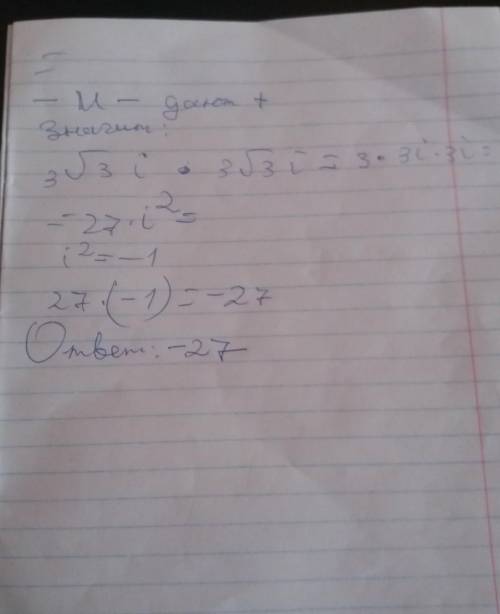 =
- И - дают +
Значит:
3√3 i • 3√3 i = 3 • 3i • 3i =
= 27 • i² =
i² = -1
27 • (-1) = -27
Ответ: -27